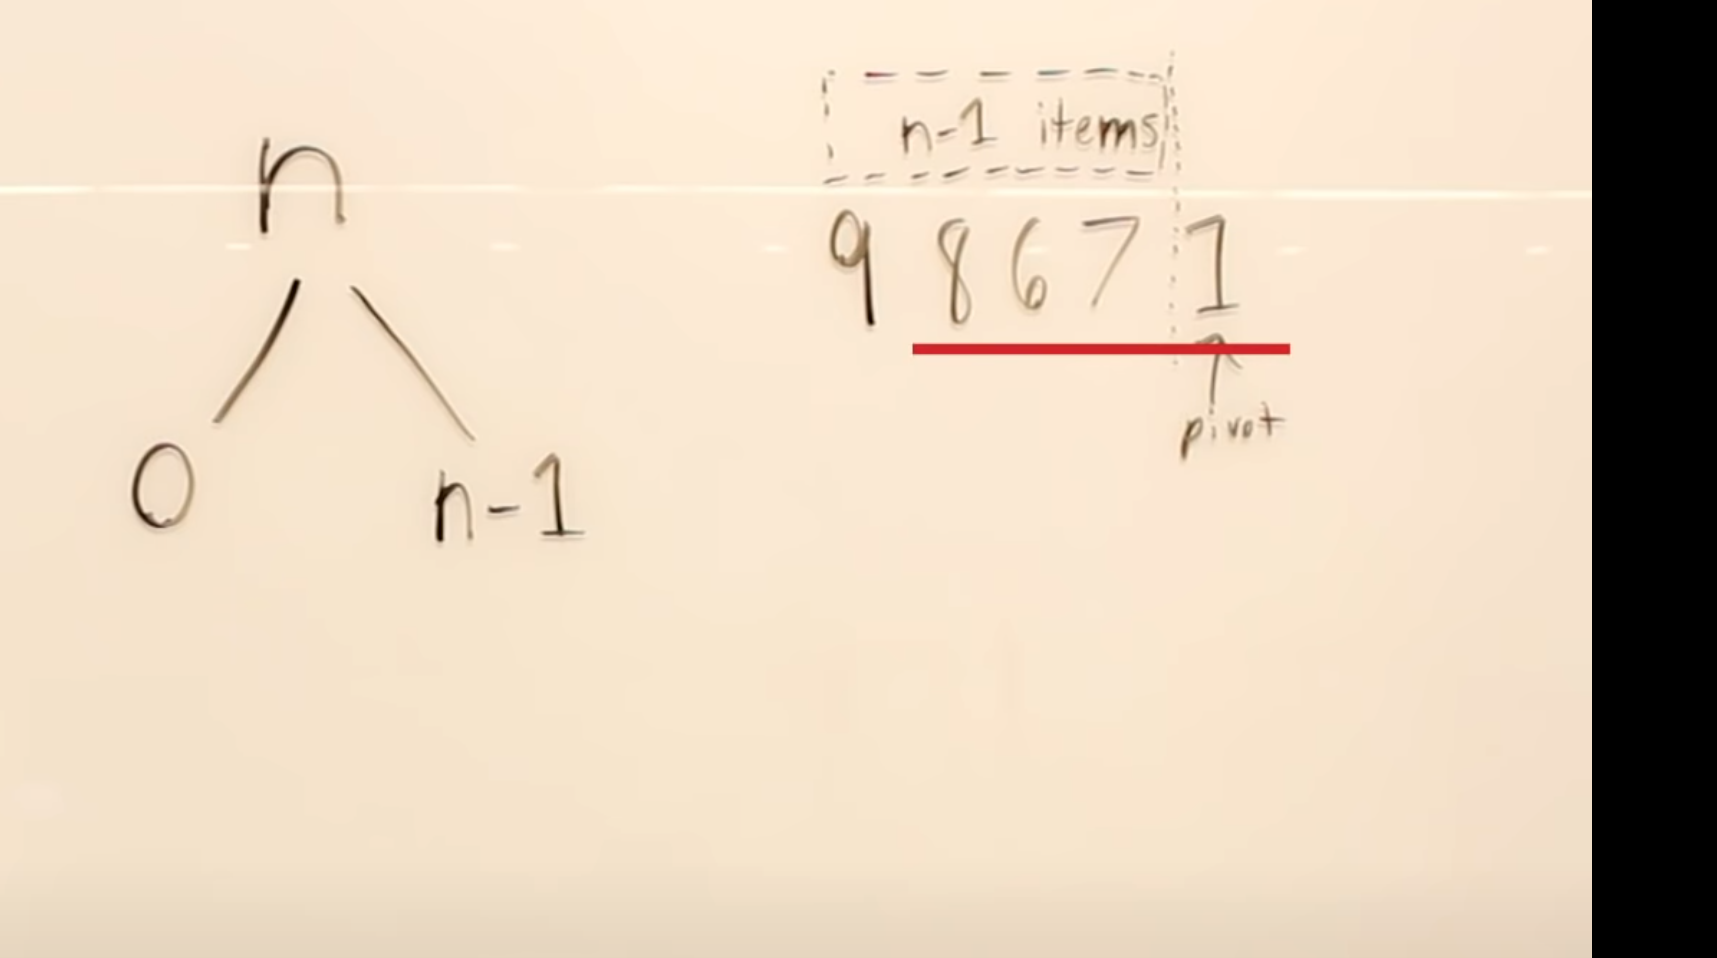 n
0
n-1
n-1 items
9 8 6 7 1
pivot